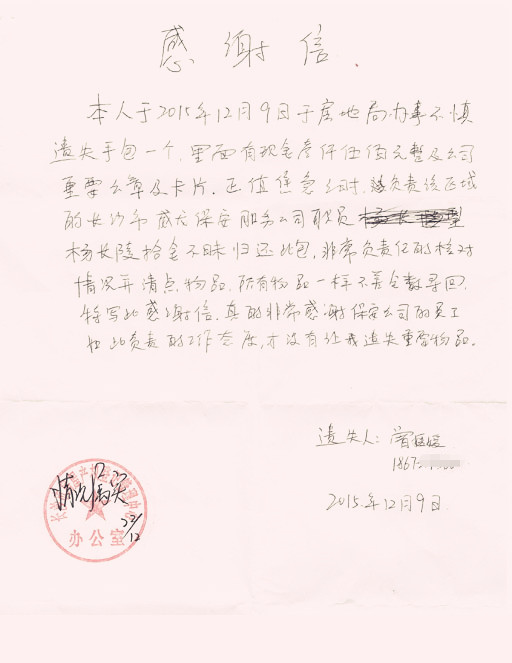 感谢信.
本人于2015年12月9日于房地局办事不慎
遗失手包一个,里面有现金叁仟伍佰元整及公司
重要公章及卡片.正值紧急之时,负责该区域
的长沙市威龙保安服务公司职员
杨长陵拾金不昧归还此包,非常负责任的核对
情况并清点物品.所有物品一样不差全数寻回.
特写此感谢信.真的非常感谢保安公司的员工
如此负责的工作态度,才没有让我遗失重要物品。
遗失人:
1867
2015.年12月9日.
情况属实
23/12
办公室